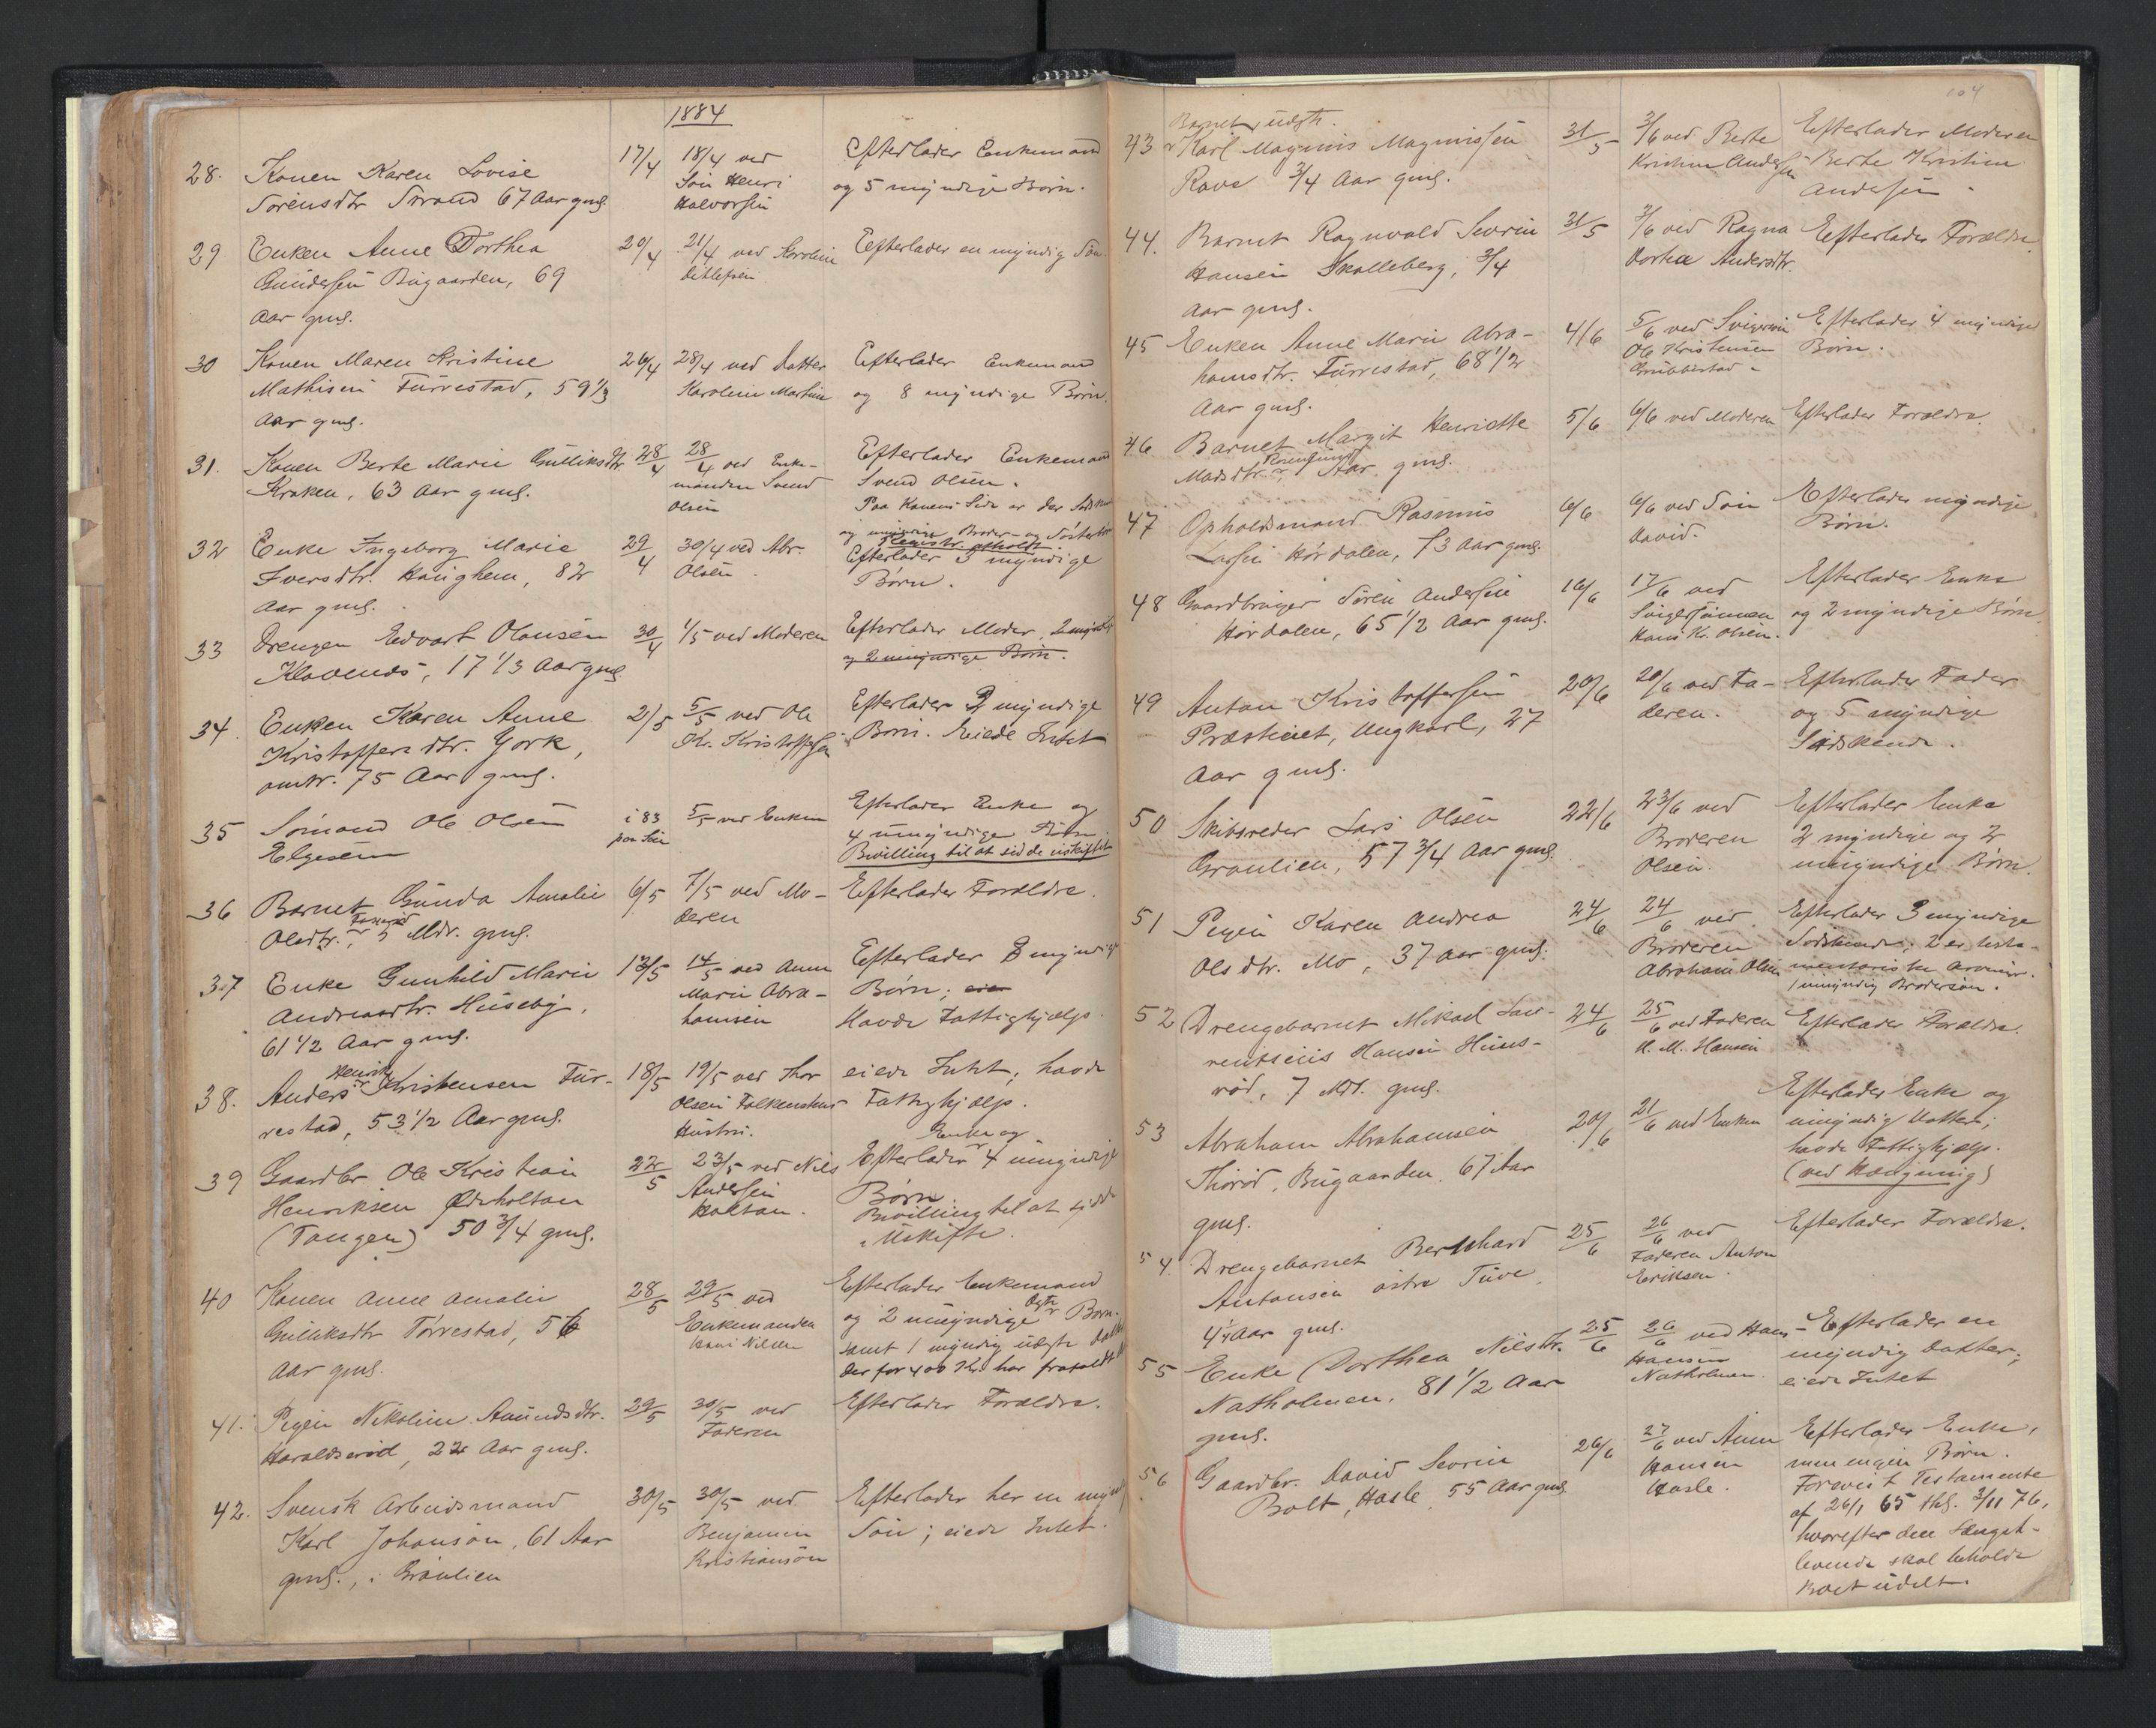 1884
28. Konen Karen Lovise
Sörensdtr Strand 67 Aar gml.
17/4
18/4 ved
Sön Henri
Halvorsen
Efterlader Enkemand
og 5 myndige Börn.
29 Enken Anne Dorthea
Gundersen Bugaarden, 69
Aar gml.
20/4
21/4 ved Karoline
Ditlefsen
Efterlader en myndig Sön
30 Konen Maren Kristine
Mathisen Furrestad, 59 1/3
Aar gml.
26/4
28/4 ved Datter
Karoline Martine
Efterlader Enkemand
og 8 myndige Börn.
31. Konen Berte Marie Gulliksdtr
Kraken, 63 Aar gml.
28/4
28/4 ved Enke-
manden Svend
Olsen
Efterlader Enkemand
Svend Olsen.
Paa Konens Side er der
og myndige Broder- og
Registr. afholdt.
32 Enke Ingeborg Marie
Iversdtr. Haughem, 82
Aar gml.
29/4
30/4 ved Abr.
Olsen.
Efterlader 3 myndige
Börn.
33 Drengen Edvart Olausen
Klavenes, 17 1/3 Aar gml
30/4
1/5 ved Moderen
Efterlader Moder, 2
og 2 umyndige Börn.
34 Enken Karen Anne
Kristoffersdtr. York,
omtr. 75 Aar gml.
2/5
5/5 ved Ole
Kr. Kristoffersen
Efterlader 2 myndige
Börn. Eiede Intet
35 Sömand Ole Olsen
Elgesem
i 83
paa Sön
5/5 ved Enken
Efterlader Enke og
4 umyndige Börn.
Bevilling til at sidde uskiftet
36 Barnet Gunda Amalie
Olsdtr., 5 Mdr. gml.
6/5
7/5 ved Mo-
deren
Efterlader Foraldre.
37 Enke Gunhild Marie
Andreasdtr. Huseby,
61 1/2 Aar gml.
13/5
14/5 ved Anne
Marie Abra-
hamsen
Efterlader 8 myndige
Börn;
Havde Fattighjælp.
38. Anders Henrik Kristensen Fur-
restad, 53 1/2 Aar gml.
18/5
19/5 ved Thor
Olsen Falkenstens
Hustru.
eiede Intet; havde
Fattighjælp.
39 Gaardbr Ole Kristian
Henriksen Ödeholtan
(Tangen) 50 3/4 gml.
22/5
23/5 ved Nils
Andersen
Holtan.
Enke og
Efterlader 4 umyndige
Börn.
Bevilling til at sidde
i Uskifte.
40 Konen Anne Amalie
Gulliksdtr Törrestad, 56
Aar gml.
28/5
29/5 ved
Enkemanden
Hans Nilsen
Efterlader Enkemand
og 2 umyndige Ægte Börn.
samt 1 myndig uægte
der for 400 Kr. har frafaldt
41. Pigen Nikoline Amundsdtr.
Haraldsröd, 22 Aar gml.
29/5
30/5 ved
Faderen
Efterlader Foraldre.
42. Svensk Arbeidsmand
Karl Johanson, 61 Aar
gml., i Granlien
30/5
30/5 ved
Benjamin
Kristianson
Efterlader her en myndig
Sön; eiede Intet.
104
Barnet, uægte.
43 Karl Magnus Magnussen
Rove 3/4 Aar gml.
31/5
3/6 ved Berte
Kristine Andersen
Efterlader Moderen
Berte Kristine
Andersen.
44. Barnet Ragnvald Severin
Hansen Skalleberg, 3/4
Aar gml.
31/5
3/6 ved Ragna
Dorthea Andersdtr.
Efterlader Foraldre.
45 Enken Anne Marie Abra-
hamsdtr. Furrestad, 68 1/2
Aar gml.
4/6
5/6 ved Svigersön
Ole Kristensen
Efterlader 4 myndige
Börn.
46 Barnet Margit Henriette
Madsdtr. Aar gml.
5/6
6/6 ved Moderen
Efterlader Foraldre.
47 Opholdsmand Rasmus
Larsen Hördalen, 73 Aar gml.
6/6
6/6 ved Sön
David.
Efterlader myndige
Börn.
48 Gaardbruger Sören Andersen
Hördalen, 65 1/2 Aar gml.
16/6
17/6 ved
Svigersönnen
Hans Kr. Olsen.
Efterlader Enke
og 2 myndige Börn.
49 Anton Kristoffersen
Præstinet, Ungkarl, 27
Aar gml.
20/6
20/6 ved Fa-
deren.
Efterlader Fader
og 5 myndige
Södskende.
50 Skibsreder Lars Olsen
Granlien, 57 3/4 Aar gml.
22/6
23/6 ved
Broderen
Olsen.
Efterlader Enke
2 myndige og 2
umyndige Börn.
51 Pigen Karen Andrea
Olsdtr. Mo, 37 Aar gml.
24/6
24/6 ved
Broderen
Abraham Olsen
Efterlader 3 myndige
Södskende; 2 er testa-
mentariske Arvinger.
1 umyndig Brodersön.
52 Drengebarnet Mikael Lau-
rentsius Hansen Huns-
röd, 7 Mdr. gml.
24/6
25/6 ved Faderen
H. M. Hansen
Efterlader Foraldre.
53 Abraham Abrahamsen
Thoröd, Bugaarden, 67 Aar
gml.
20/6
21/6 ved Enken
Efterlader Enke og
umyndig Datter;
havde Fattighjælp.
(ved Hængning)
54. Drengebarnet Bernhard
Antonsen östre Tuve,
4 1/4 Aar gml.
25/6
26/6 ved
Faderen Anton
Eriksen.
Efterlader Foraldre.
55 Enke Dorthea Nilsdtr.
Natholmen, 81 1/2 Aar
gml.
25/6
26/6 ved Hans
Hansen
Natholmen
Efterlader en
myndig Datter;
eiede Intet
56 Gaardbr. David Severin
Bolt, Hasle, 55 Aar gml
26/6
27/6 ved Anne
Hansen
Hasle.
Efterlader Enke,
men ingen Börn.
Foreviist Testamente
af 26/1 65 thl. 3/11 76,
hvorefter den længst-
levende skal beholde
Boet udelt.